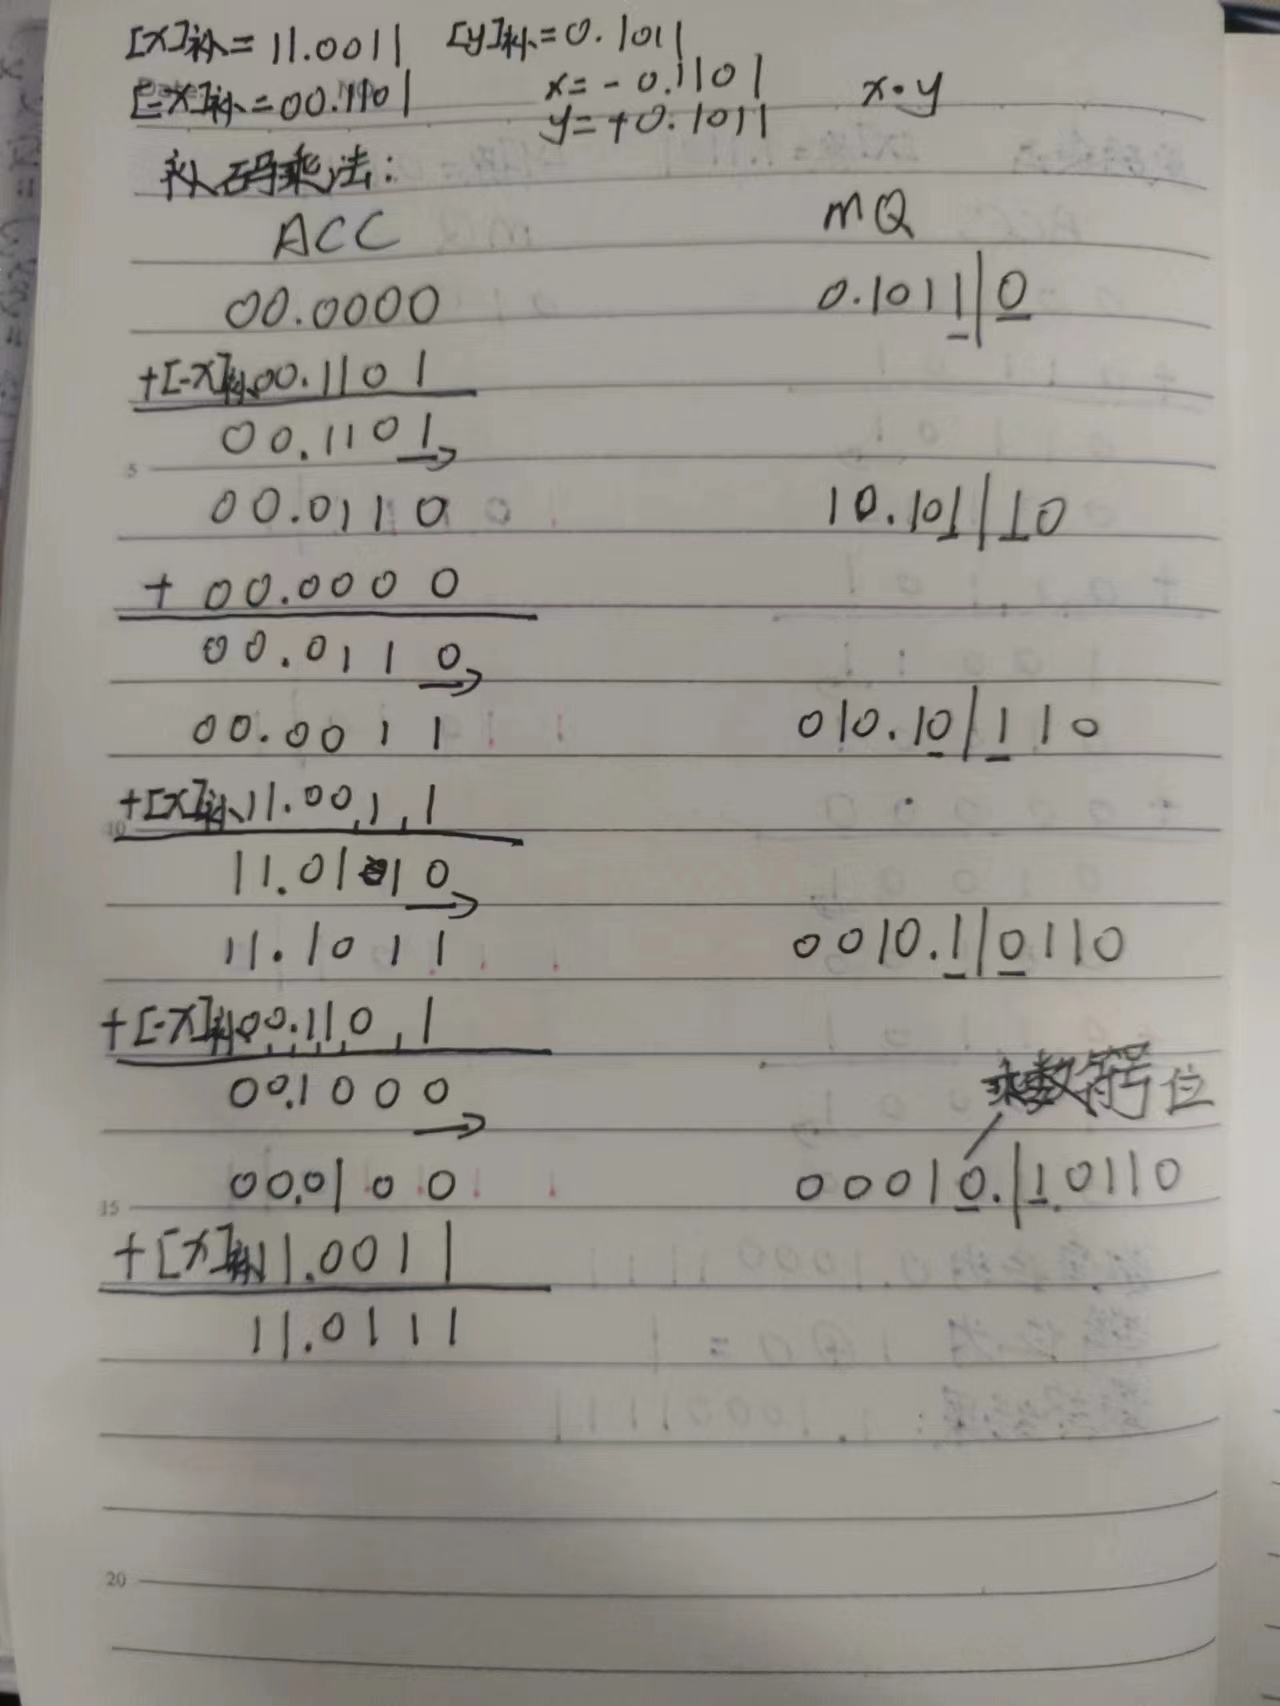 [x]补=11.0011 [y]补=0.1011
[-x]补=00.1101 x=-0.1101 x·y
y=+0.1011
补码乘法:
ACC MQ
00.0000 0.1011|0
+[-x]补00.1101
00.1101
5
00.0110 10.101|10
+00.0000
00.0110
00.0011 010.10|110
+[x]补11.0011
10
11.0110
11.1011 0010.1|0110
+[-x]补00.1101
00.1000
乘数符号位
00.0100 00010.|10110
15
+[x]补11.0011
11.0111
20